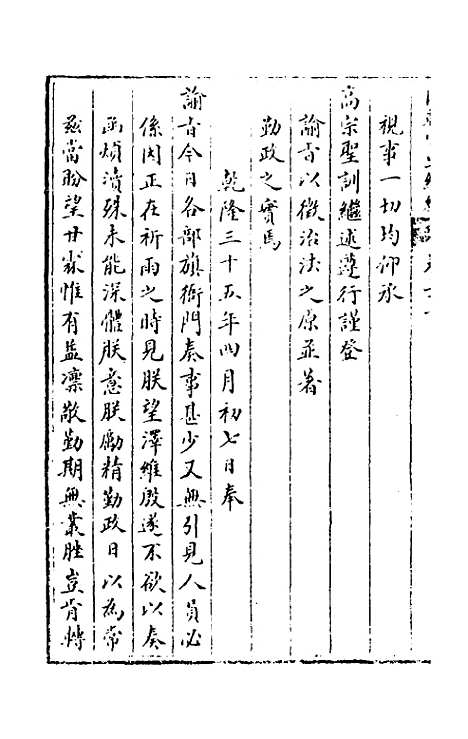 視事一切均仰承
高宗聖訓繼述遵行謹登
諭旨以徵治法之原並著
勤政之實焉
乾隆三十五年四月初七日奉
諭旨今日各部旗衙門奏事甚少又無引見人員必
係因正在祈雨之時見朕望澤維殷遂不欲以奏
函煩瀆殊未能深體朕意朕勵精勤政日以為常
茲當盼望甘霖惟有益凜敬勤期無叢脞豈肯轉